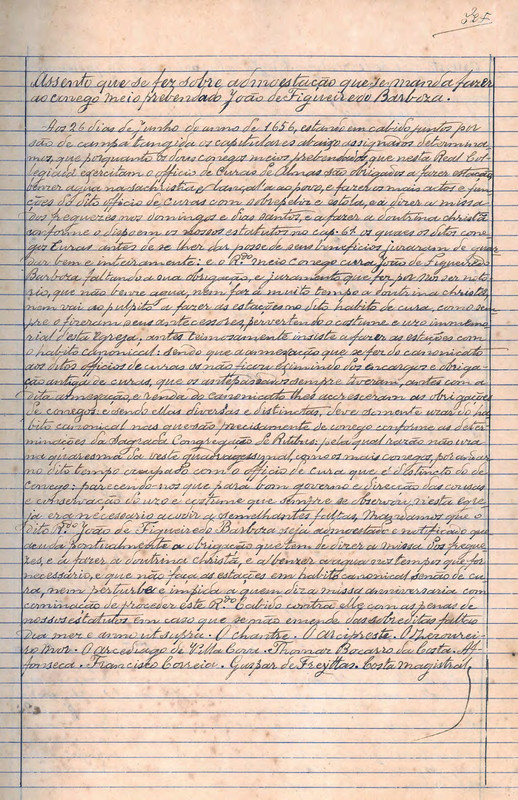 Assento que se fez sobre a admoestação que se manda fazer
ao conego meio prebendado João de Figueiredo Barboza.
Aos 26 dias de Junho do anno de 1656, estando em cabido juntos por
são de campa tangida os capitulares abaixo assignados determina-
mos, que porquanto os dores conegos meios prebendados, que nesta Real Col-
legiada exercitam o officio de Curas de Almas são obrigados a fazer estação
benzer agua na sachristia e lançal-a ao povo, e fazer os mais actos e fun-
ções do dito officio de curas com sobrepeliz e estola, e a dizer a missa
dos freguezes nos domingos e dias santos, e a fazer a doutrina christã
conforme o dispoem os nossos estatutos no cap. 67 os quaes os ditos cone-
gos Curas antes de se lher dar posse de seus beneficios juraram de guar
dar bem e inteiramente: e o R.do meio conego cura João de Figueiredo
Barboza faltando a sua obrigação, e juramento que fez por nos ser noto-
rio, que não benze agua, nem faz a muito tempo a doutrina christã,
nem vai ao pulpito a fazer as estações no dito habito de cura, como sem
pre o fizeram seus antecessores pervertendo o costume e uzo immemo-
rial d'esta Egreja, antes teimosamente insiste a fazer as estações com
o habito canonical: sendo que a annexação que se fez do canonicato
aos ditos officios de curas os não ficou eximindo dos encargos e obriga-
ção antiga de curas, que os antepassados sempre tiveram, antes com a
dita annexação e renda do canonicato lhes accresceram as obrigações
de conegos: e sendo ellas diversas e distinctas, deve somente uzar do ha-
bito canonical nas que são precisamente de conego conforme as deter-
minações da Sagrada Congregação de Ritibus; pela qual razão não uza
na quaresma da veste quadragesimal, como os mais conegos, por andar
no dito tempo occupado com o officio de cura que é distincto do de
conego: parecendo-nos que para bom governo e direcção das cousas
e conservação do uzo e costume que sempre se observou n'esta egre
ja era necessario acodir a semelhantes faltas, Mandamos que o
dito R.do João de Figueiredo Barboza seja admoestado e notificado que
acuda pontualmente a obrigação que tem de dizer a missa dos fregue-
zes, e a fazer a doutrina christã, e a benzer a agua nos tempos que for
necessario, e que não faça as estações em habito canonical senão de cu-
ra, nem perturbe e impida a quem diz a missa anniversaria com
comminação de proceder este R.do Cabido contra elle com as penas de
nossos estatutos em caso que se não emende das sobreditas faltas
Dia mez e anno ut supra. O chantre. O arcipreste. O Thezourei-
ro Mor. O arcediago de Villa Cova. Thomaz Bocarro da Costa. Af-
fonseca. Francisco Correia. Gaspar de Freyttas. Costa magistral